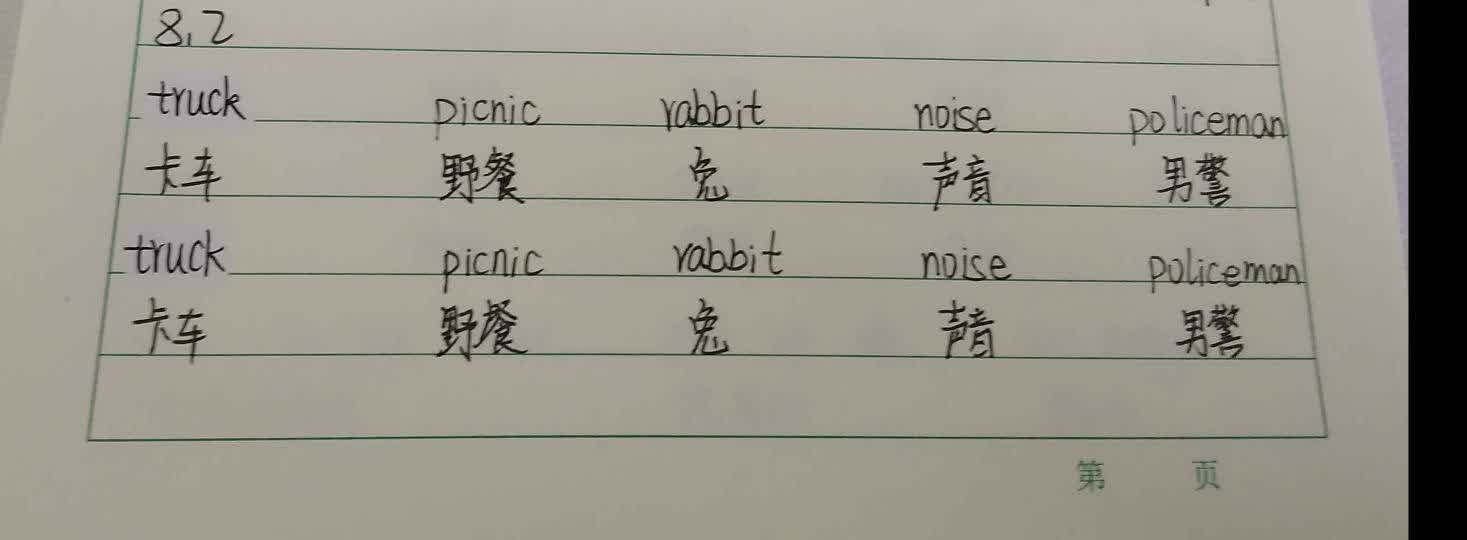 8.2
truck picnic rabbit noise policeman
卡车 野餐 兔 声音 男警
truck picnic rabbit noise policeman
卡车 野餐 兔 声音 男警
第 页